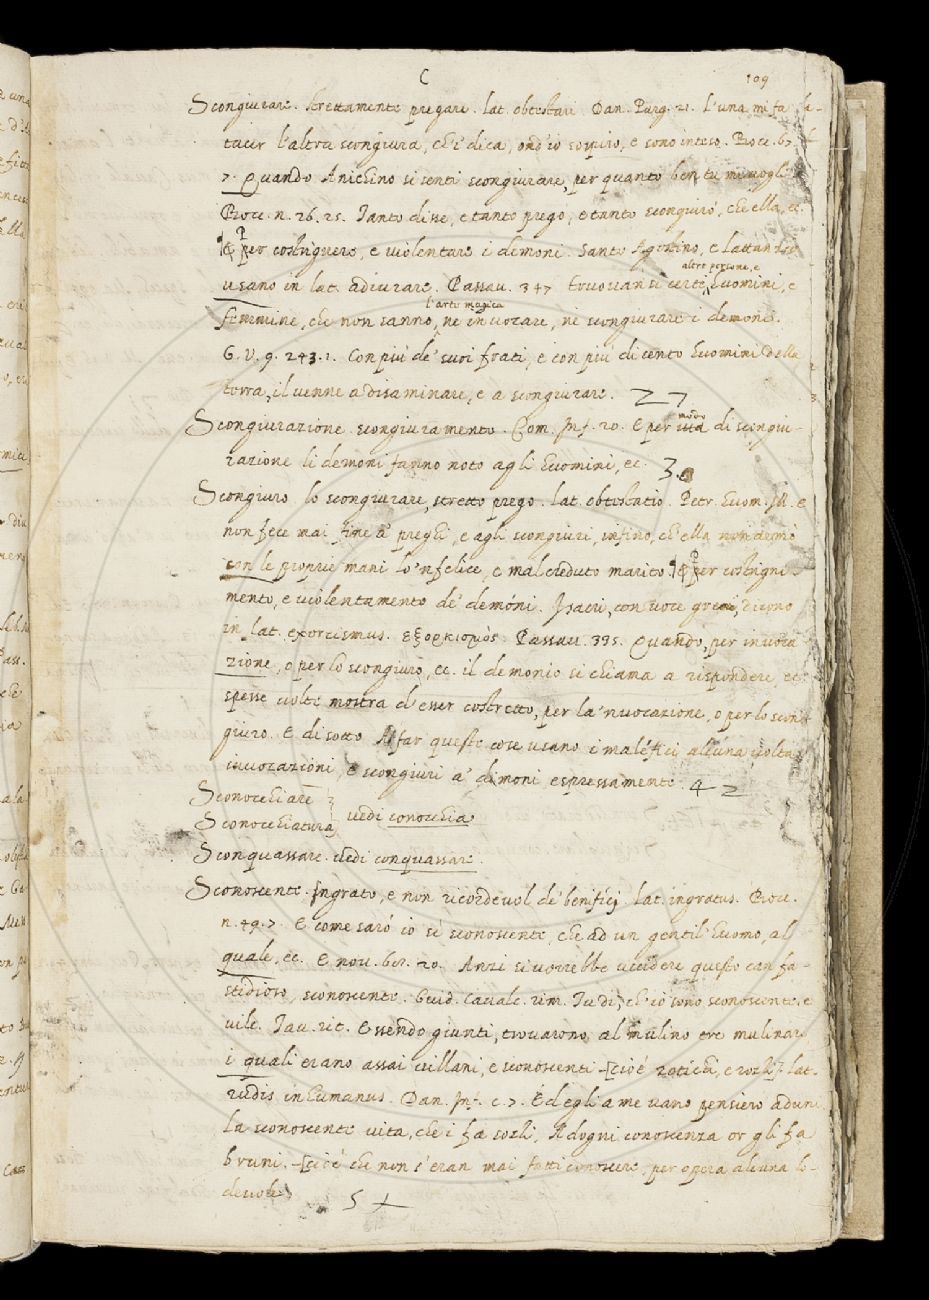 C
109
Scongiurare. strettamente pregare. lat. obtestari. Dan. Purg. 21. L'una mi fa ta-
cer l'altra scongiura, ch'i dica, ond'io sospiro, e sono inteso. Bocc.
7. Quando Anichino si sentì scongiurare, per quanto ben
Bocc. n. 26. 25. Tanto disse, e tanto pregò, e tanto scongiurò, che ella, ec.
per costrignere, e violentare i demoni. Santo Agostino, e Lattanzio
altre persone, e
usano in lat. adiurare. Passau. 347 truovansi certi huomini, e
l'arte magica
femmine, che non sanno, ne invocare, ne scongiurare i demoni.
G. V. 9. 243. 1. Con più de' suoi frati, e con più di cento huomini della
terra, il venne a disaminare, e a scongiurare. 27
modo
Scongiurazione. scongiuramento. Com. Inf. 20. E per via di scongiu-
razione li demoni fanno noto agli huomini, ec. 3.
Scongiuro. lo scongiurare, stretto prego. lat. obtestatio. Petr. huom. ill. e
non fece mai fine a' preghi, e agli scongiuri, infino, ch'ella non
con le proprie mani lo 'nfelice, e mal creduto marito. per costrigni-
mento, e violentamento de' demóni. I sacri, con voce greca, dicono
in lat. exorcismus. εξορκισμὸς. Passau. 335. Quando, per invoca
zione, o per lo scongiuro, ec. il demonio si chiama a rispondere, ec.
spesse volte mostra d'esser costretto, per la 'nvocazione, o per lo scon-
giuro. E di sotto A far queste cose usano i maléfici alcuna volta
invocazioni, e scongiuri a' dimoni espressamente. 42
Sconocchiare
Sconocchiatura vedi conocchia
Sconquassare. vedi conquassare.
Sconoscente. Ingrato, e non ricordevol de' benifícij lat. ingratus. Bocc.
n. 49. 7. E come sarò io sì sconoscente, che ad un gentil'huomo, al
quale, ec. E nov. 20. Anzi si vorrebbe uccidere questo can fa-
stidioso, sconoscente. Guid. Cavalc. rim. Tu di, ch'io sono sconoscente, e
vile. Tav. rit. Essendo giunti, trovarono, al mulino tre mulinari
i quali erano assai villani, e sconoscenti cioè rotichi, e rozhi lat.
rudis inhumanus. Dan. Inf. c. 7. Ed egli a me vano pensiero aduni
La sconoscente vita, che i fa sozhi, Ad ogni conoscenza or gli fa
bruni. cioè che non s'eran mai fatti conoscere, per opera alcuna lo-
devole 5